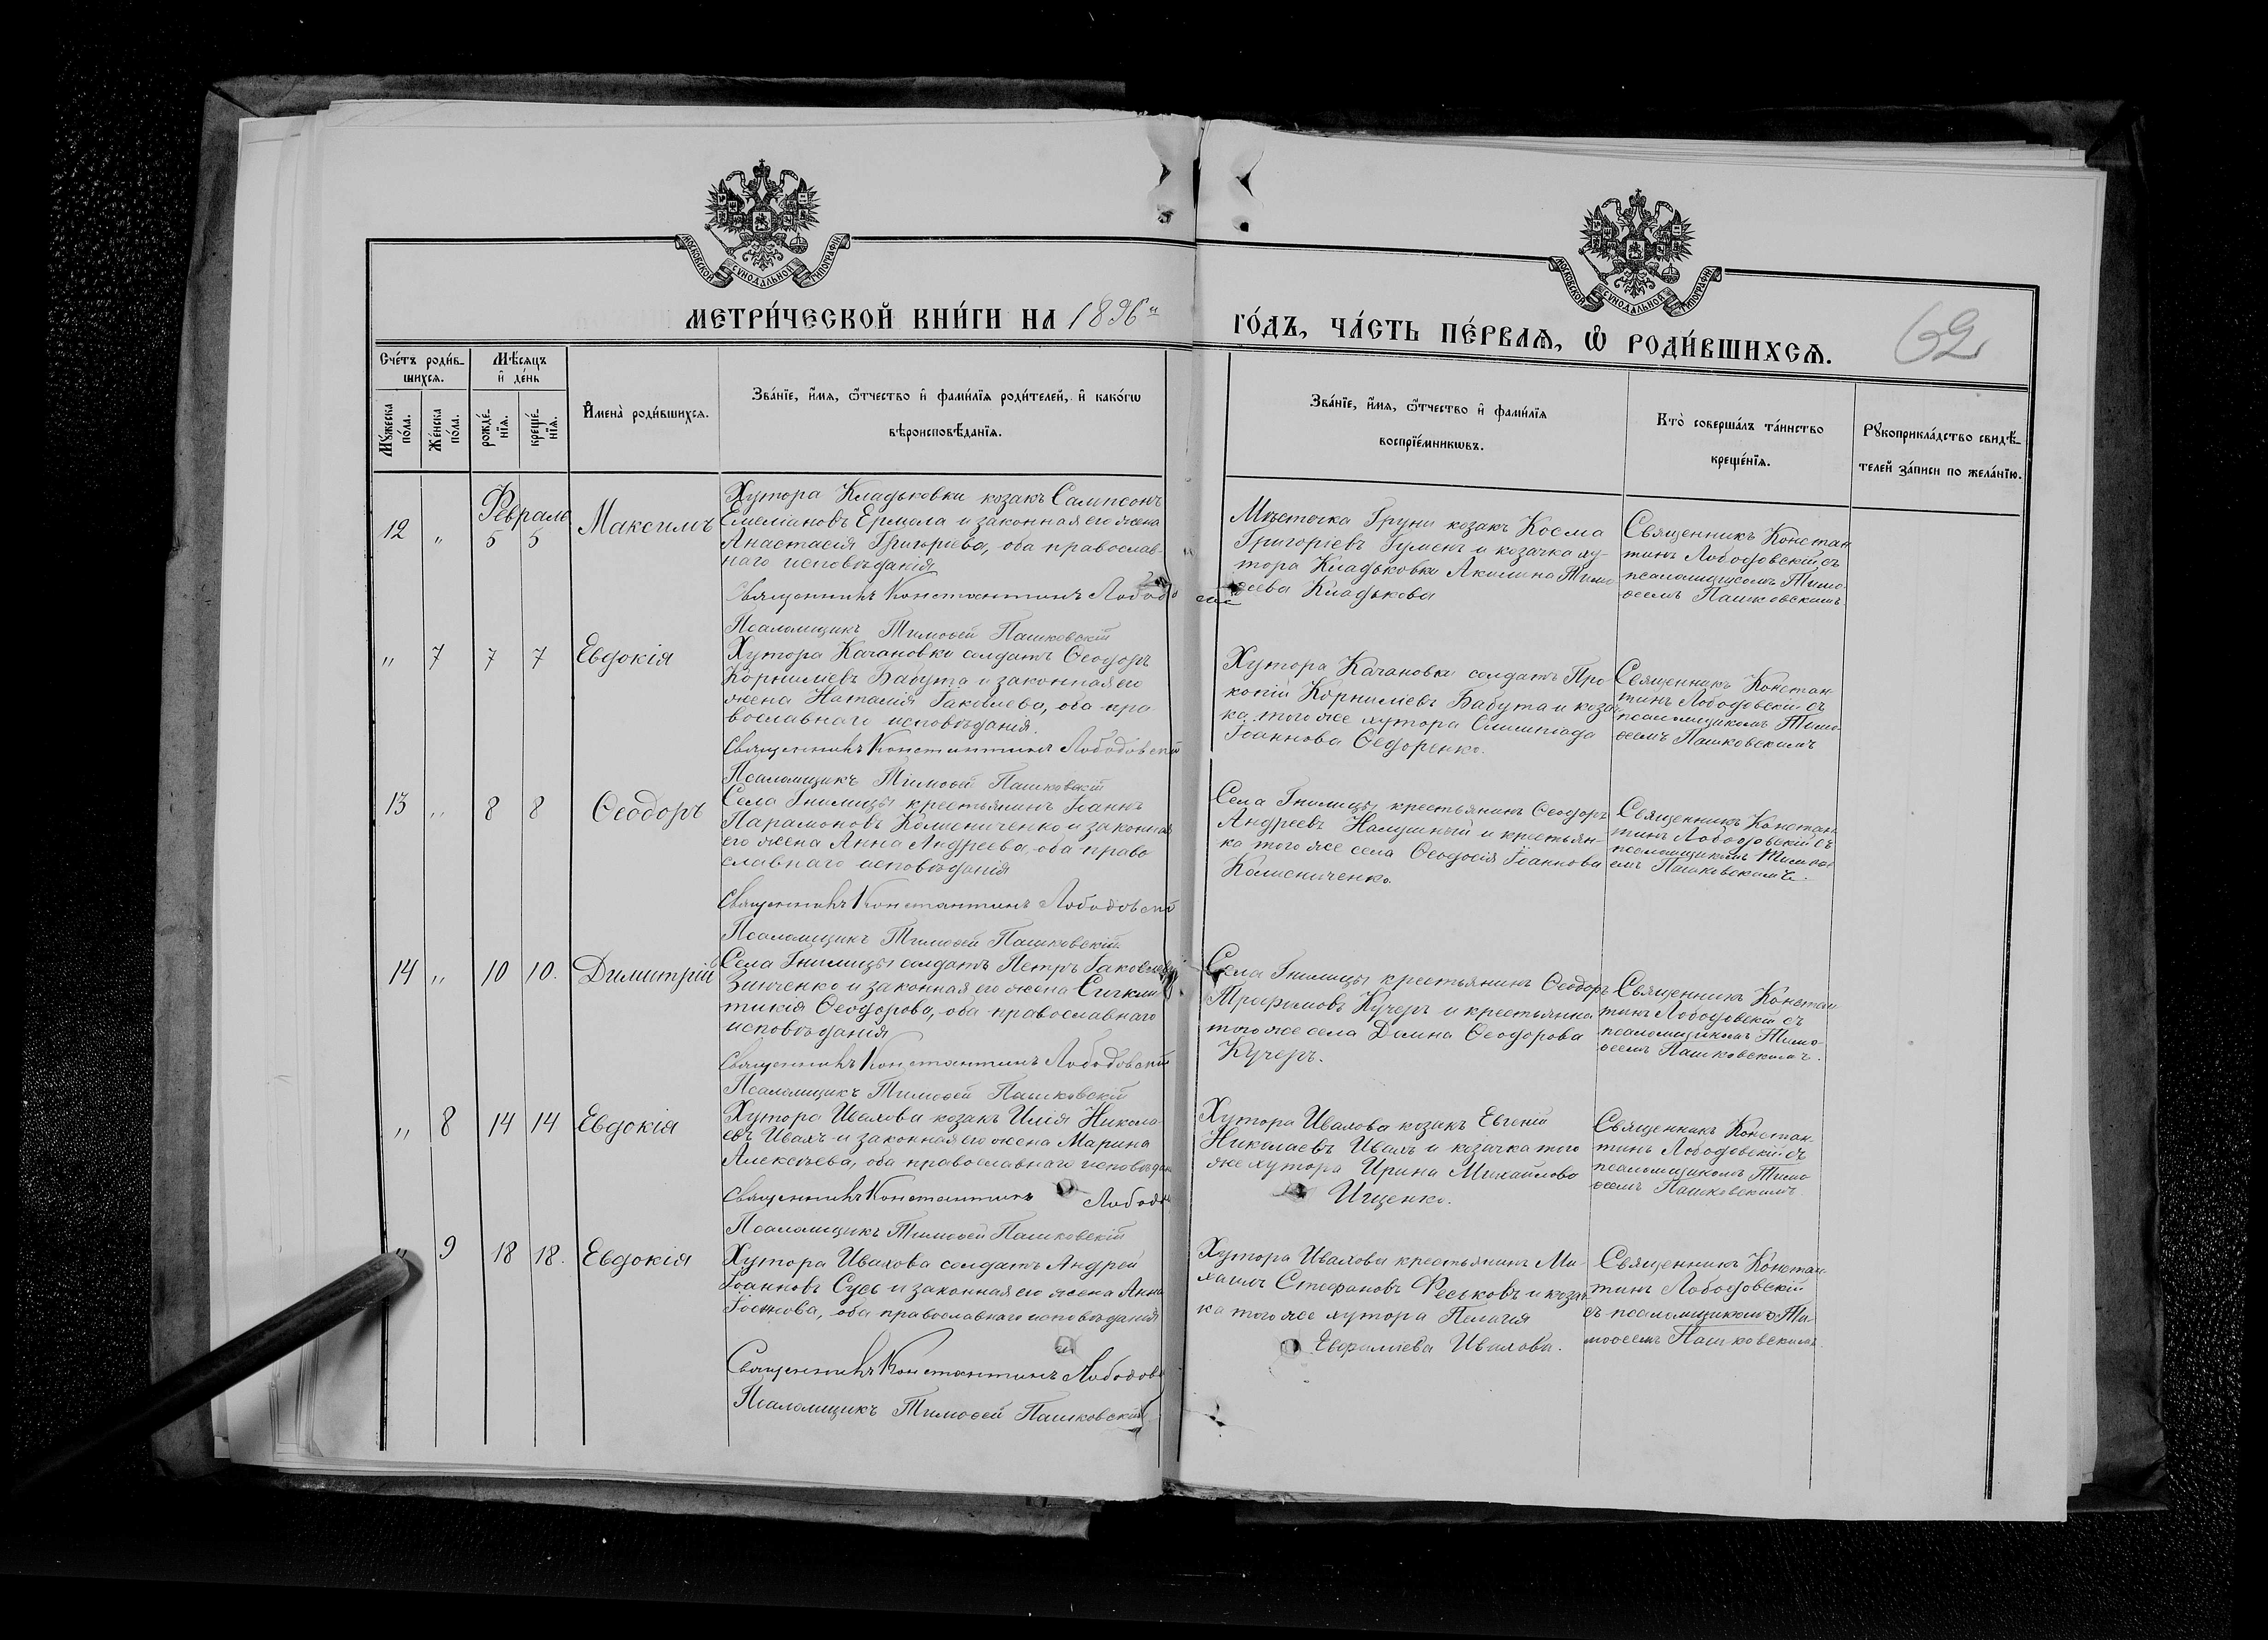 МОСКОВСКОЙ СУНОДАЛЬНОЙ ТИПОГРАФІИ
МОСКОВСКОЙ СУНОДАЛЬНОЙ ТИПОГРАФІИ
МЕТРИ́ЧЕСКОЙ КНИ́ГИ НА 1896й
ГО́ДЪ, ЧА́СТЬ ПЕ́РВАѦ, Ѡ҆ РОДИ́ВШИХСѦ.
62
Сче́тъ роди́в-
шихсѧ.
Мѣ́сѧцъ
и҆ де́нь
Мꙋ́жеска
по́ла.
Же́нска
по́ла.
рожде́-
нїѧ.
креще́-
нїѧ.
И҆мена̀ роди́вшихсѧ.
Зва́нїе, и҆́мѧ, ѻ҆́тчество и҆ фами́лїѧ роди́телей, и҆ како́гѡ
вѣроисповѣ́данїѧ.
Зва́нїе, и҆́мѧ, ѻ҆́тчество и҆ фами́лїѧ
воспрїе́мникѡвъ.
Кто̀ соверша́лъ та́инство
креще́нїѧ.
Рꙋкоприкла́дство свидѣ́-
телей за́писи по жела́нїю.
Февраль
12 „ 5 5 Максимъ
Хутора Кладьковки козакъ Сампсонъ
Емелиановъ Ермола и законная его жена
Анастасія Григоріева, оба православ-
наго исповѣданія
Священникъ Константинъ Лободо
Псаломщикъ Тимоѳей Пашковскій
Мѣстечка Груни козакъ Косма
Григоріевъ Гуменъ и козачка ху-
тора Кладьковки Акилина Тимо
ѳеева Кладькова
Священникъ Констан
тинъ Лободовскій съ
псаломщикомъ Тимо
ѳеемъ Пашковскимъ.
„ 7 7 7 Евдокія
Хутора Качановки солдатъ Ѳеодоръ
Корниліевъ Бабута и законная его
жена Наталія Іаковлева, оба пра
вославнаго исповѣданія.
Священникъ Константинъ Лободовскій
Псаломщикъ Тимоѳей Пашковскій
Хутора Качановки солдатъ Про
копій Корниліевъ Бабута и козач
ка того же хутора Олимпіада
Іоаннова Ѳедоренко.
Священникъ Констан
тинъ Лободовскій съ
псаломщикомъ Тимо
ѳеемъ Пашковскимъ
13 „ 8 8 Ѳеодоръ
Села Гнилицы крестьянинъ Іоаннъ
Парамоновъ Колисниченко и законная
его жена Анна Андреева, оба право
славнаго исповѣданія
Священникъ Константинъ Лободовскій
Псаломщикъ Тимоѳей Пашковскій
Села Гнилицы крестьянинъ Ѳеодоръ
Андреевъ и крестьян-
ка того же села Ѳеодосія Іоаннова
Колисниченко.
Священникъ Констан
тинъ Лободовскій съ
псаломщикомъ Тимоѳе
емъ Пашковскимъ.
14 „ 10 10. Димитрій
Села Гнилицы солдатъ Петръ Іаковлевъ
Зинченко и законная его жена Сигкли
тикія Ѳеодорова, оба православнаго
исповѣданія
Священникъ Константинъ Лободовскій
Псаломщикъ Тимоѳей Пашковскій
Села Гнилицы крестьянинъ Ѳеодоръ
Трофимовъ Кучеръ и крестьянка
того же села Домна Ѳеодорова
Кучеръ.
Священникъ Констан
тинъ Лободовскій съ
псаломщикомъ Тимо-
ѳеемъ Пашковскимъ.
„ 8 14 14 Евдокія
Хутора Ивахова козакъ Илія Никола
евъ Ивахъ и законная его жена Марина
Алексѣева, оба православнаго исповѣдан
Священникъ Константинъ Лободо
Псаломщикъ Тимоѳей Пашковскій
Хутора Ивахова козакъ Евгеній
Николаевъ Ивахъ и козачка того
же хутора Ирина Михайлова
Ищенко.
Священникъ Констан-
тинъ Лободовскій съ
псаломщикомъ Тимо
ѳеемъ Пашковскимъ.
„ 9 18 18. Евдокія
Хутора Ивахова солдатъ Андрей
Іоанновъ Сусь и законная его жена Анна
оба православнаго исповѣданія
Священникъ Константинъ Лободов
Псаломщикъ Тимоѳей Пашковскій
Хутора Ивахова крестьянинъ Ми-
хаилъ Стефановъ Феськовъ и козач
ка того же хутора Пелагія
Евфиміева Ивахова.
Священникъ Констан-
тинъ Лободовскій
съ псаломщикомъ Ти-
моѳеемъ Пашковскимъ.